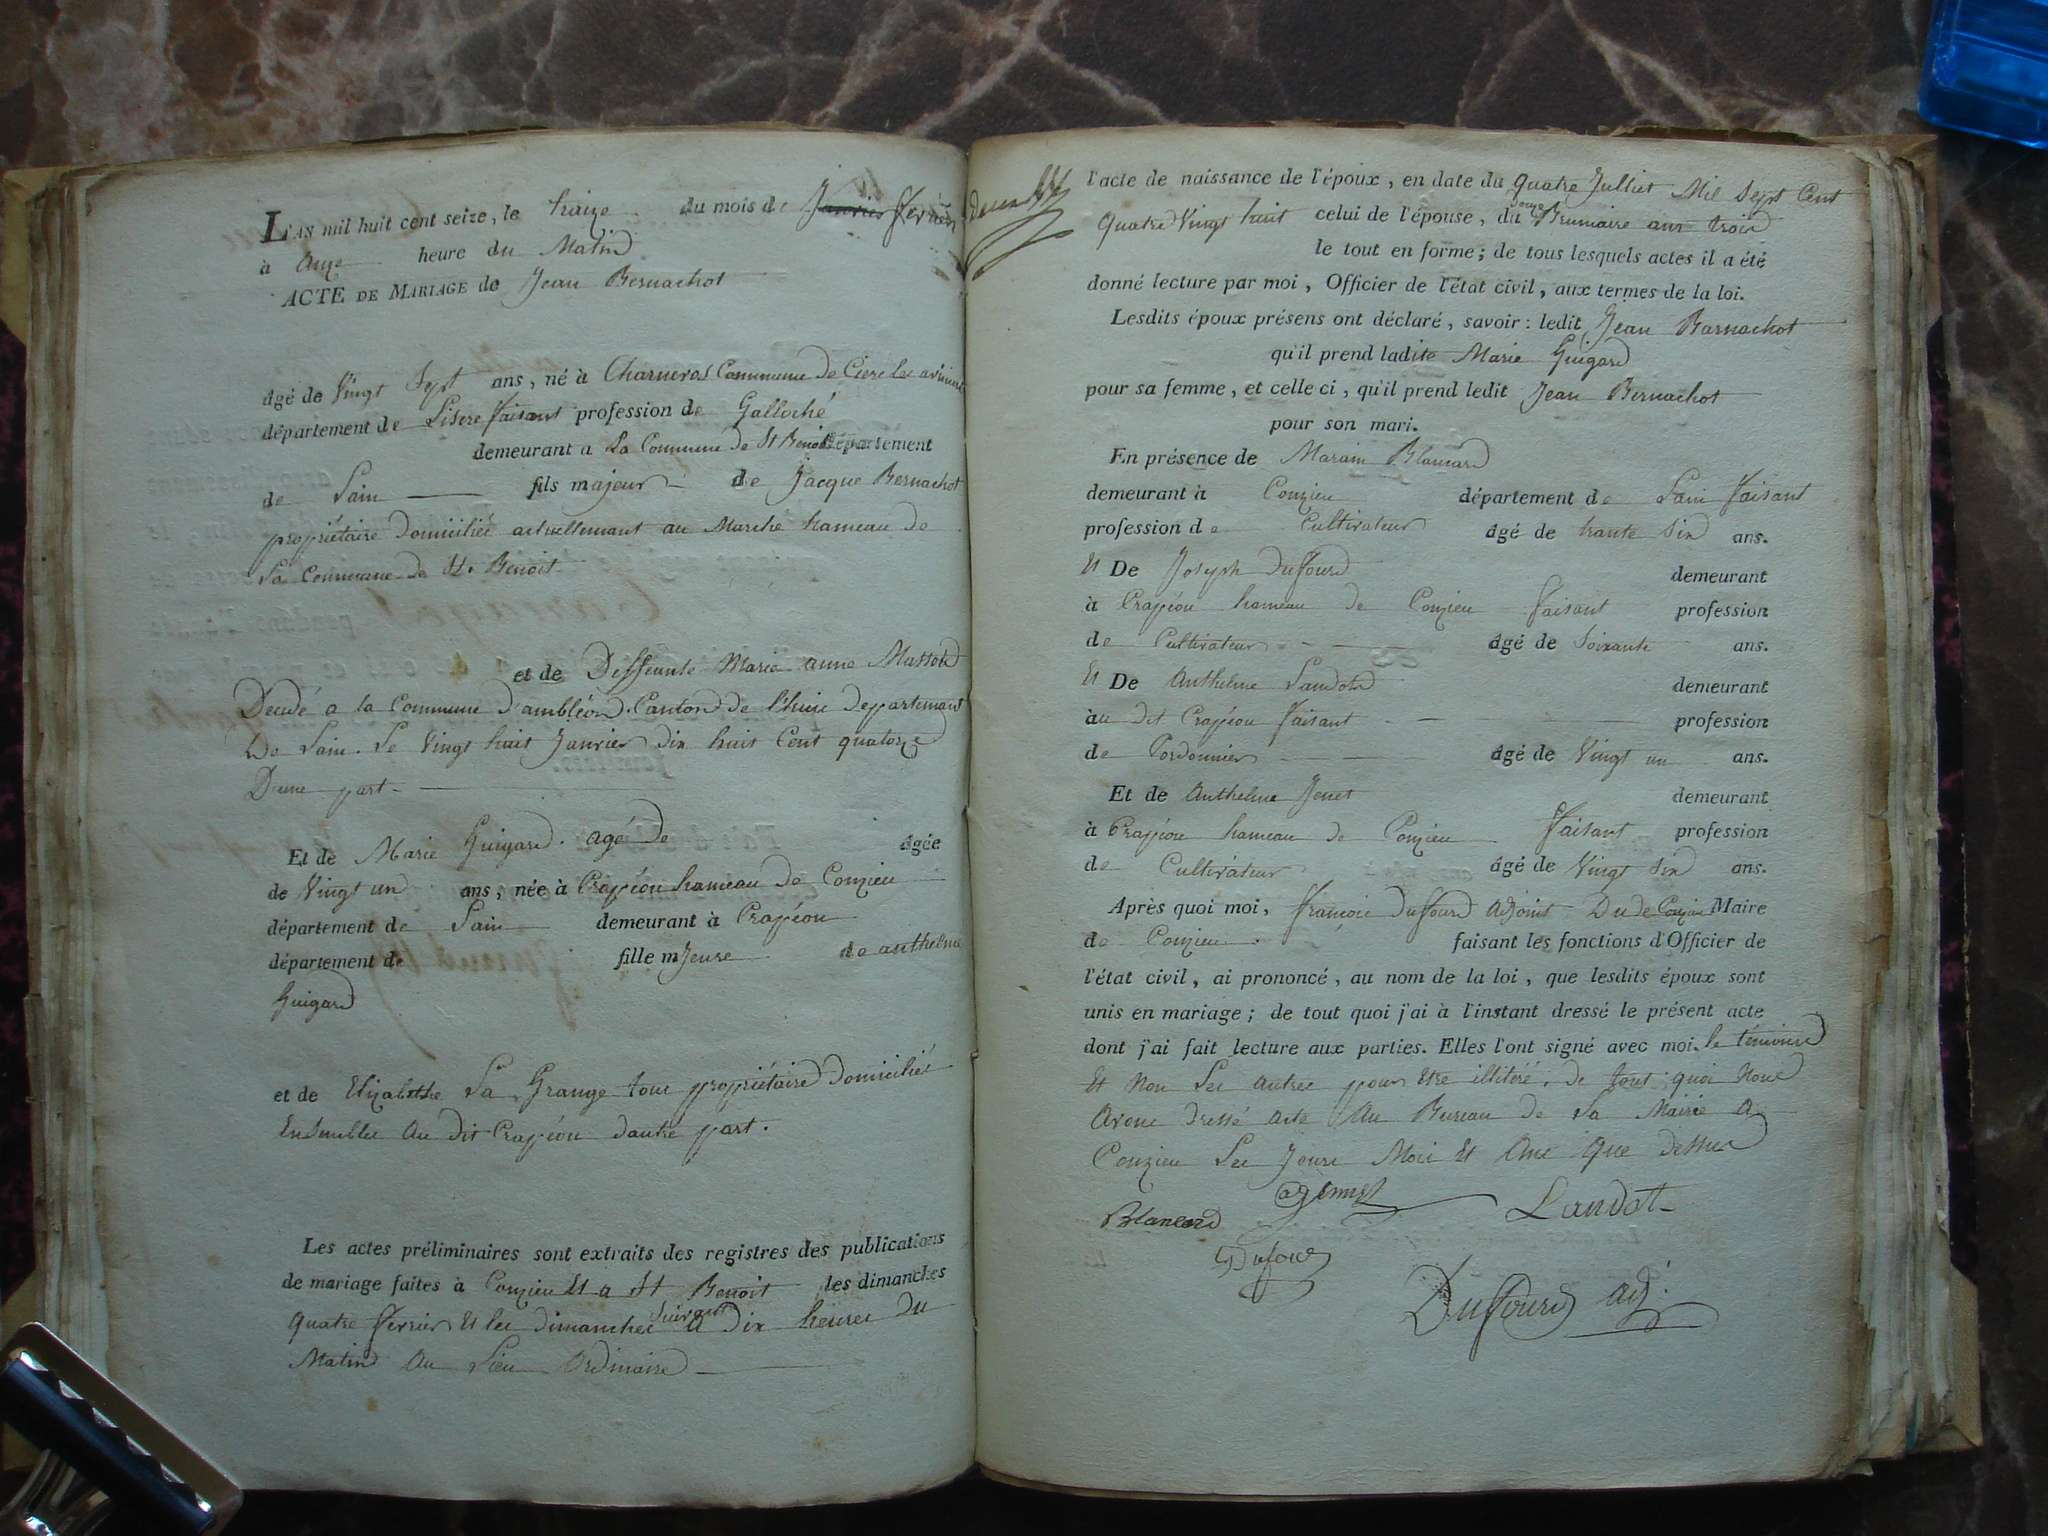 L'AN mil huit cent seize, le traize du mois de Janvier fevrier
à onze heure du Matin
ACTE DE MARIAGE de Jean Bernachot
agé de Vingt Sept ans, né à Charneros Commune de
département de Lisere faisant profession de Galloché
demeurant a La Commune de St Benoit département
de Lain fils majeur de Jacque Bernachot
propriétaire domicilié actuellemant au Marche hameau de
La Commune de St. Benoit
et de Deffeunte Marie anne Massot
Decidé a la Commune d'ambléon Canton de l'huic departemant
De Lain. Le Vingt huit Janvier dix huit Cent quatorze
Dune part
Et de Marie Guigard. agé de agée
de Vingt un ans, née à Crapéou hameau de Conzieu
département de Lain demeurant à Crapéou
département de fille mJeure de anthelme
Guigard
et de Elizabethe La Grange tous propriétaire domiciliés
Ensembles Au dit Crapéou dautre part.
Les actes préliminaires sont extraits des registres des publications
de mariage faites à Conzieu Et a St Benoit les dimanches
Quatre fevrier Et les dimanches Suivant a dix heures du
Matin Au Lieu Ordinaire
l'acte de naissance de l'époux, en date du Quatre Julliet Mil Sept Cent
Quatre Vingt huit celui de l'épouse, du Brumaire an trois
le tout en forme; de tous lesquels actes il a été
donné lecture par moi, Officier de l'état civil, aux termes de la loi.
Lesdits époux présens ont déclaré, savoir: ledit Jean Barnachot
qu'il prend ladite Marie Guigard
pour sa femme, et celle ci, qu'il prend ledit Jean Bernachot
pour son mari.
En présence de Marain Blancard
demeurant à Conzieu département de Lain faisant
profession de Cultivateur âgé de trante Six ans.
Et De Joseph Duffourd demeurant
à Crapéou hameau de Conzieu faisant profession
de Cultivateur âgé de Soixante ans.
Et De Anthelme Landot demeurant
au dit Crapéou faisant profession
de Cordonnier âgé de Vingt un ans.
Et de Anthelme Jenet demeurant
à Crapéou hameau de Conzieu faisant profession
de Cultivateur âgé de Vingt Six ans.
Après quoi moi, françois Duffourd Adjoint Du de Conzieu Maire
de Conzieu. faisant les fonctions d'Officier de
l'état civil, ai prononcé, au nom de la loi, que lesdits époux sont
unis en mariage; de tout quoi j'ai à l'instant dressé le présent acte
dont j'ai fait lecture aux parties. Elles l'ont signé avec moi. le témoins
Et Non Les Autres pour Etre illitéré. de tout quoi Nous
Avons dressé acte Au Bureau de La Mairie a
Conzieu Les Jours Mois Et Ans Que dessus
Blancard Landot
Dufour
Duffourd adj.